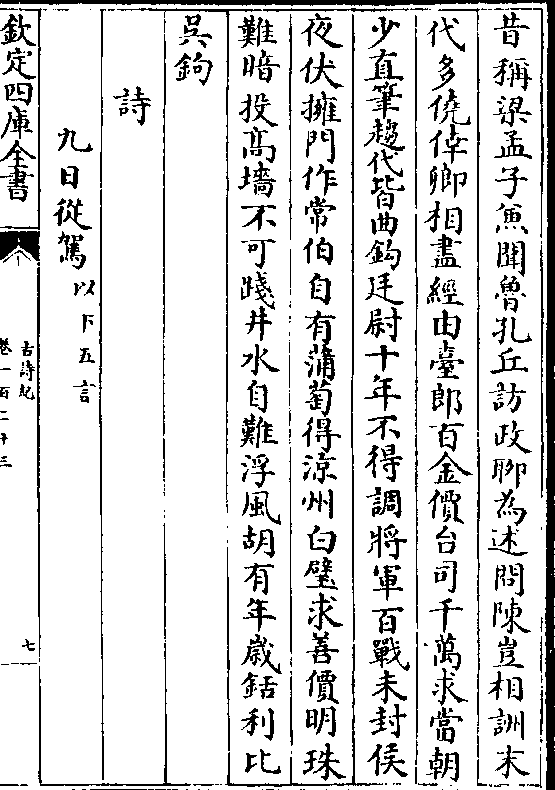 昔稱梁孟子兼聞魯孔丘訪政聊為述問陳豈相訓末
代多僥倖卿相盡經由臺郎百金價台司千萬求當朝
少直筆趨代皆曲鈎廷尉十年不得調將軍百戰未封侯
夜伏擁門作常伯自有蒲萄得涼州白璧求善價明珠
難暗投高墻不可踐井水自難浮風胡有年歲銛利比
吳鉤
詩
九日從駕以下五言
欽定四庫全書
古詩紀
卷一百二十三
七